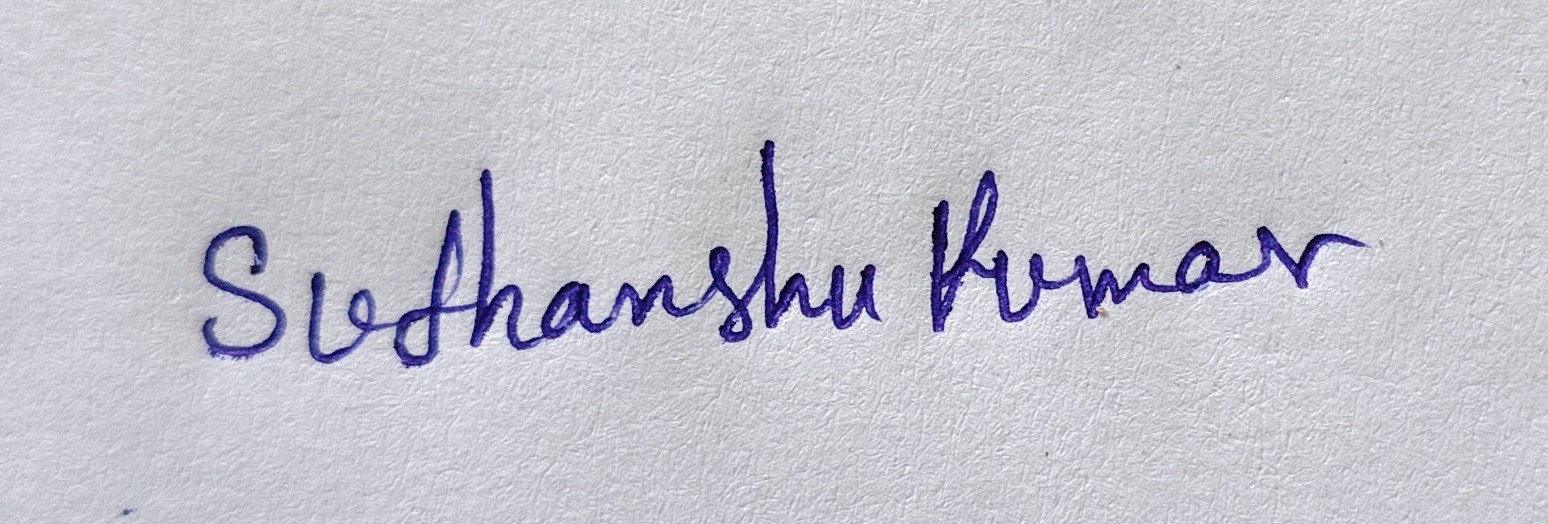 Sudhanshu Kumar